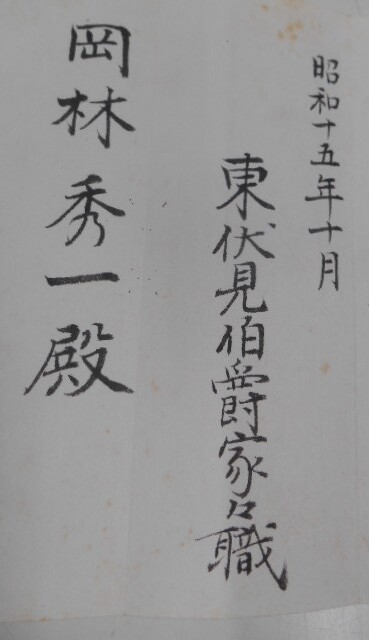 昭和十五年十月
東伏見伯爵家々職
岡林秀一殿